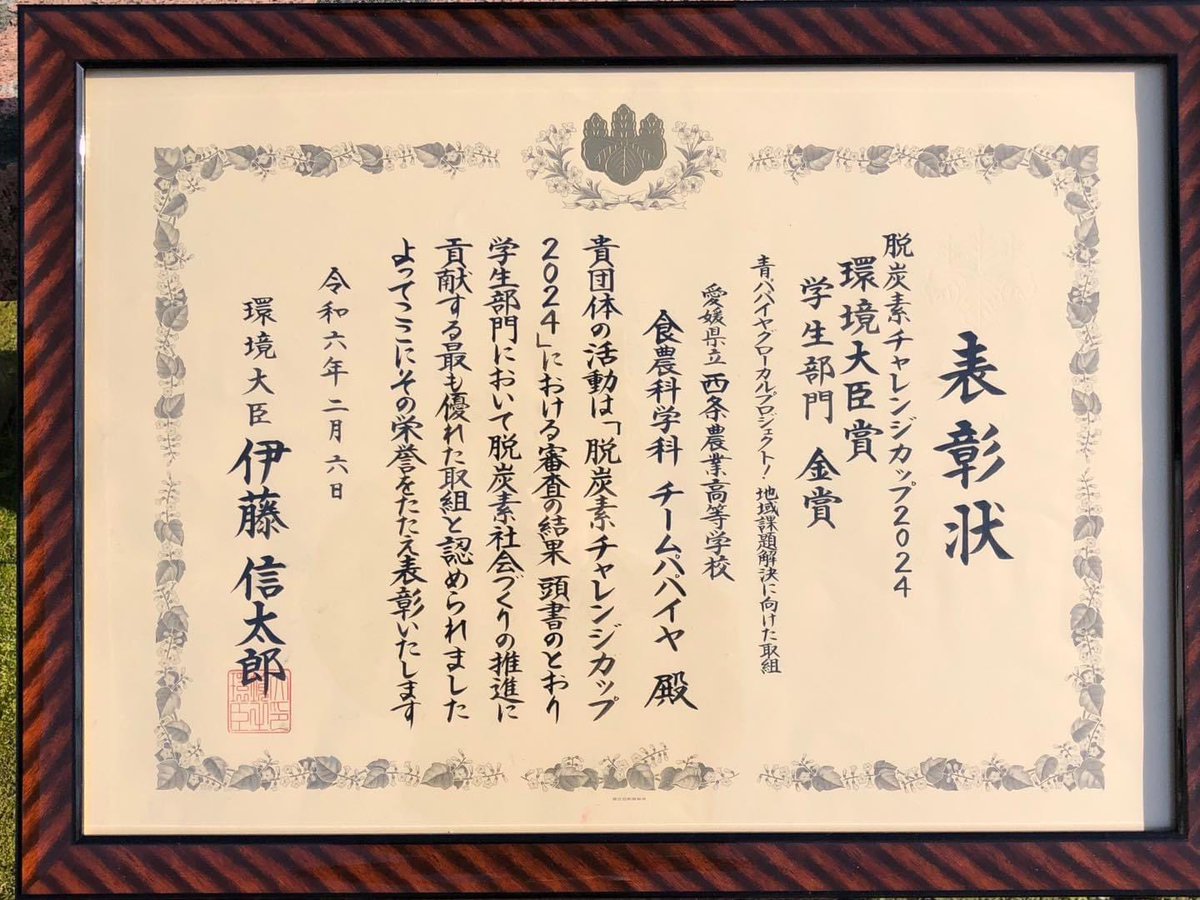 表彰状
脱炭素チャレンジカップ2024
環境大臣賞
学生部門 金賞
青パパイヤグローカルプロジェクト! 地域課題解決に向けた取組
愛媛県立 西条農業高等学校
食農科学科 チームパパイヤ 殿
貴団体の活動は「脱炭素チャレンジカップ
2024」における審査の結果 頭書のとおり
学生部門において脱炭素社会づくりの推進に
貢献する最も優れた取組と認められました
よってここにその栄誉をたたえ表彰いたします
令和六年二月六日
環境大臣 伊藤信太郎